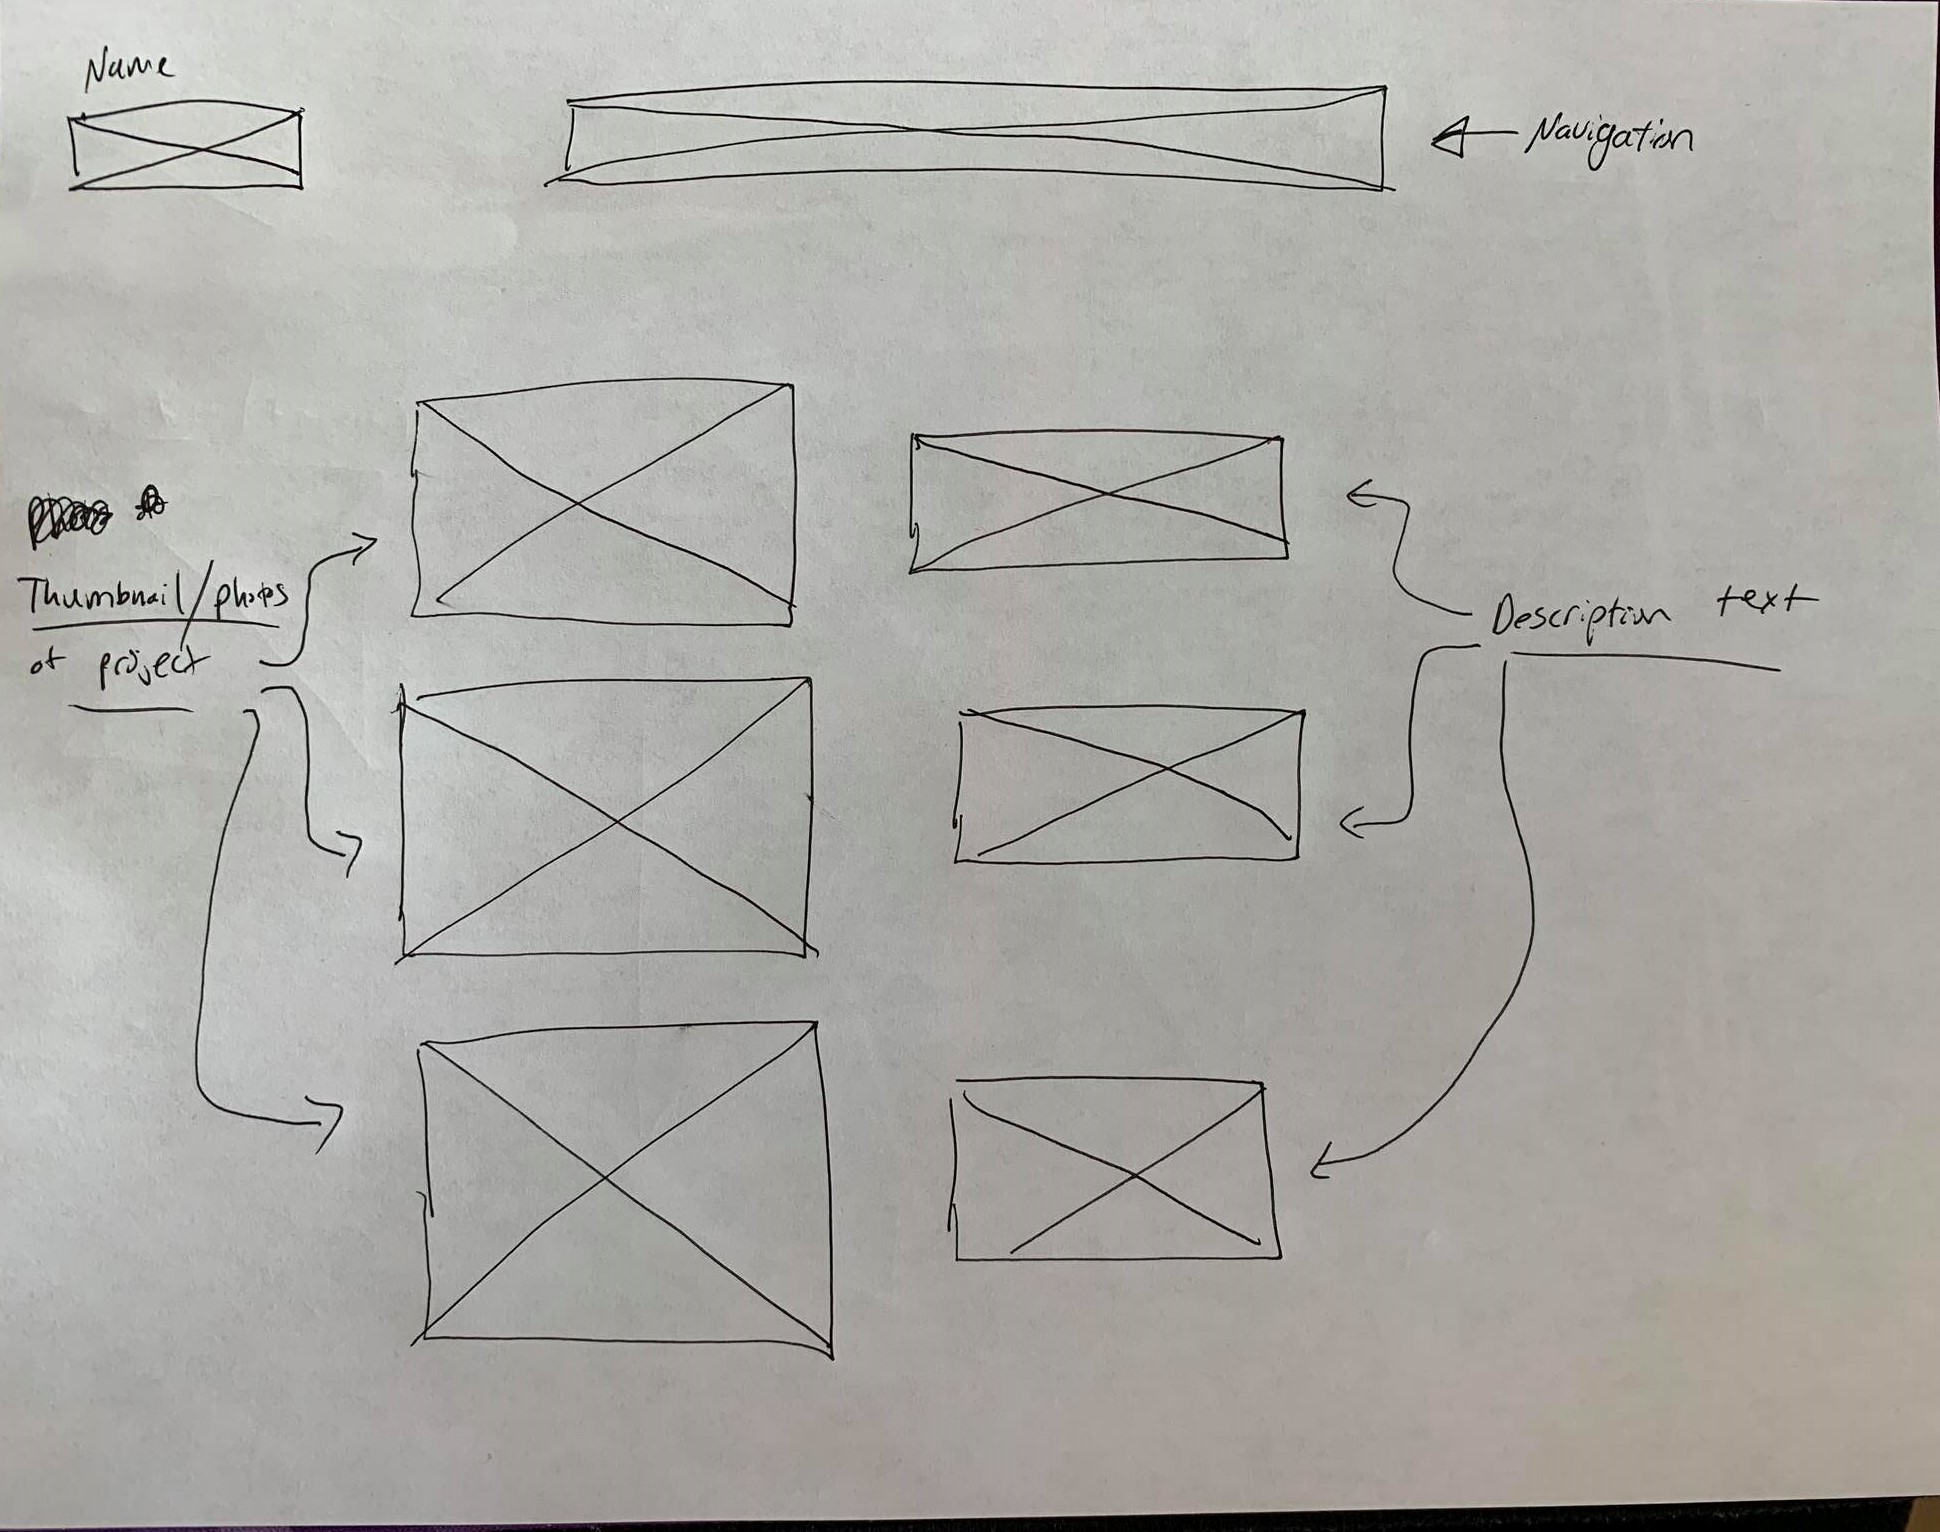 Name
Navigation
Thumbnail/photos
of project
Description text